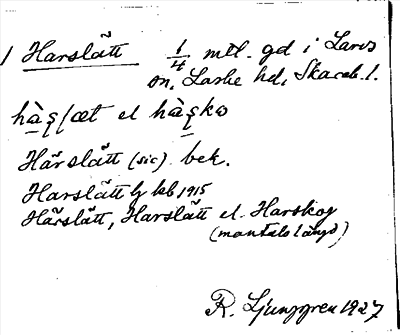 1 Harslätt 1/4 mtl. gd i Larvs
sn, Laske hd, Skarab. l.
hàşļæt el hàşko
Härslätt (sic) bek.
Harslätt jb kb 1915
Härslätt, Harslätt el. Harskog
(mantalslängd)
R. Ljunggren 1927